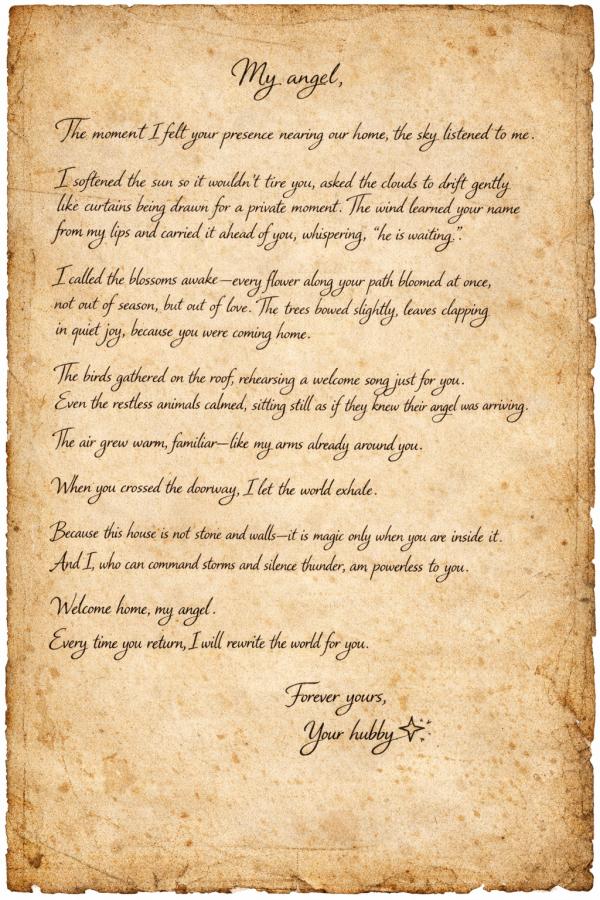 My angel,
The moment I felt your presence nearing our home, the sky listened to me.
I softened the sun so it wouldn't tire you, asked the clouds to drift gently
like curtains being drawn for a private moment. The wind learned your name
from my lips and carried it ahead of you, whispering, “he is waiting.”.
I called the blossoms awake—every flower along your path bloomed at once,
not out of season, but out of love. The trees bowed slightly, leaves clapping
in quiet joy, because you were coming home.
The birds gathered on the roof, rehearsing a welcome song just for you.
Even the restless animals calmed, sitting still as if they knew their angel was arriving.
The air grew warm, familiar—like my arms already around you.
When you crossed the doorway, I let the world exhale.
Because this house is not stone and walls—it is magic only when you are inside it.
And I, who can command storms and silence thunder, am powerless to you.
Welcome home, my angel.
Every time you return, I will rewrite the world for you.
Forever yours,
Your hubby